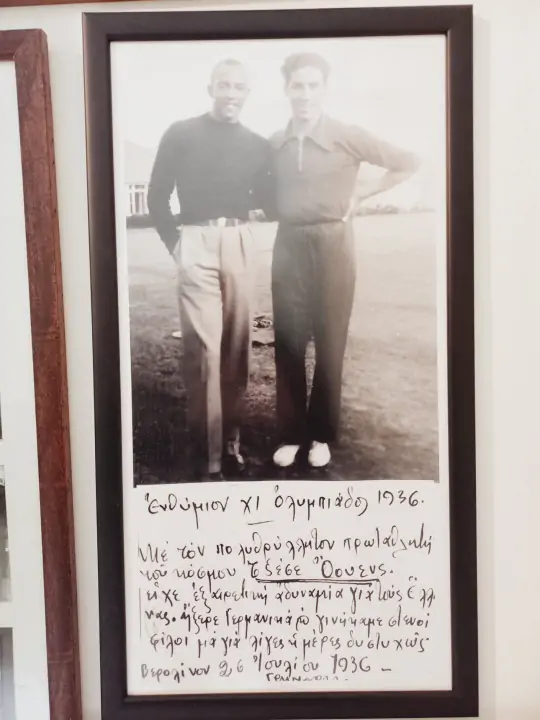 Ἐνθύμιον XI Ὀλυμπιάδος 1936.
Μὲ τὸν πολυθρύλητον πρωταθλητὴ
τοῦ κόσμου Τζέσε Ὄουενς.
εἶχε ἐξαιρετικὴ ἀδυναμία γιὰ τοὺς Ἕλλη
νας. ἤξερε Γερμανικὰ γινήκαμε στενοὶ
φίλοι μὰ γιὰ λίγες ἡμέρες δυστυχῶς
Βερολίνον 26 Ἰουλίου 1936 –